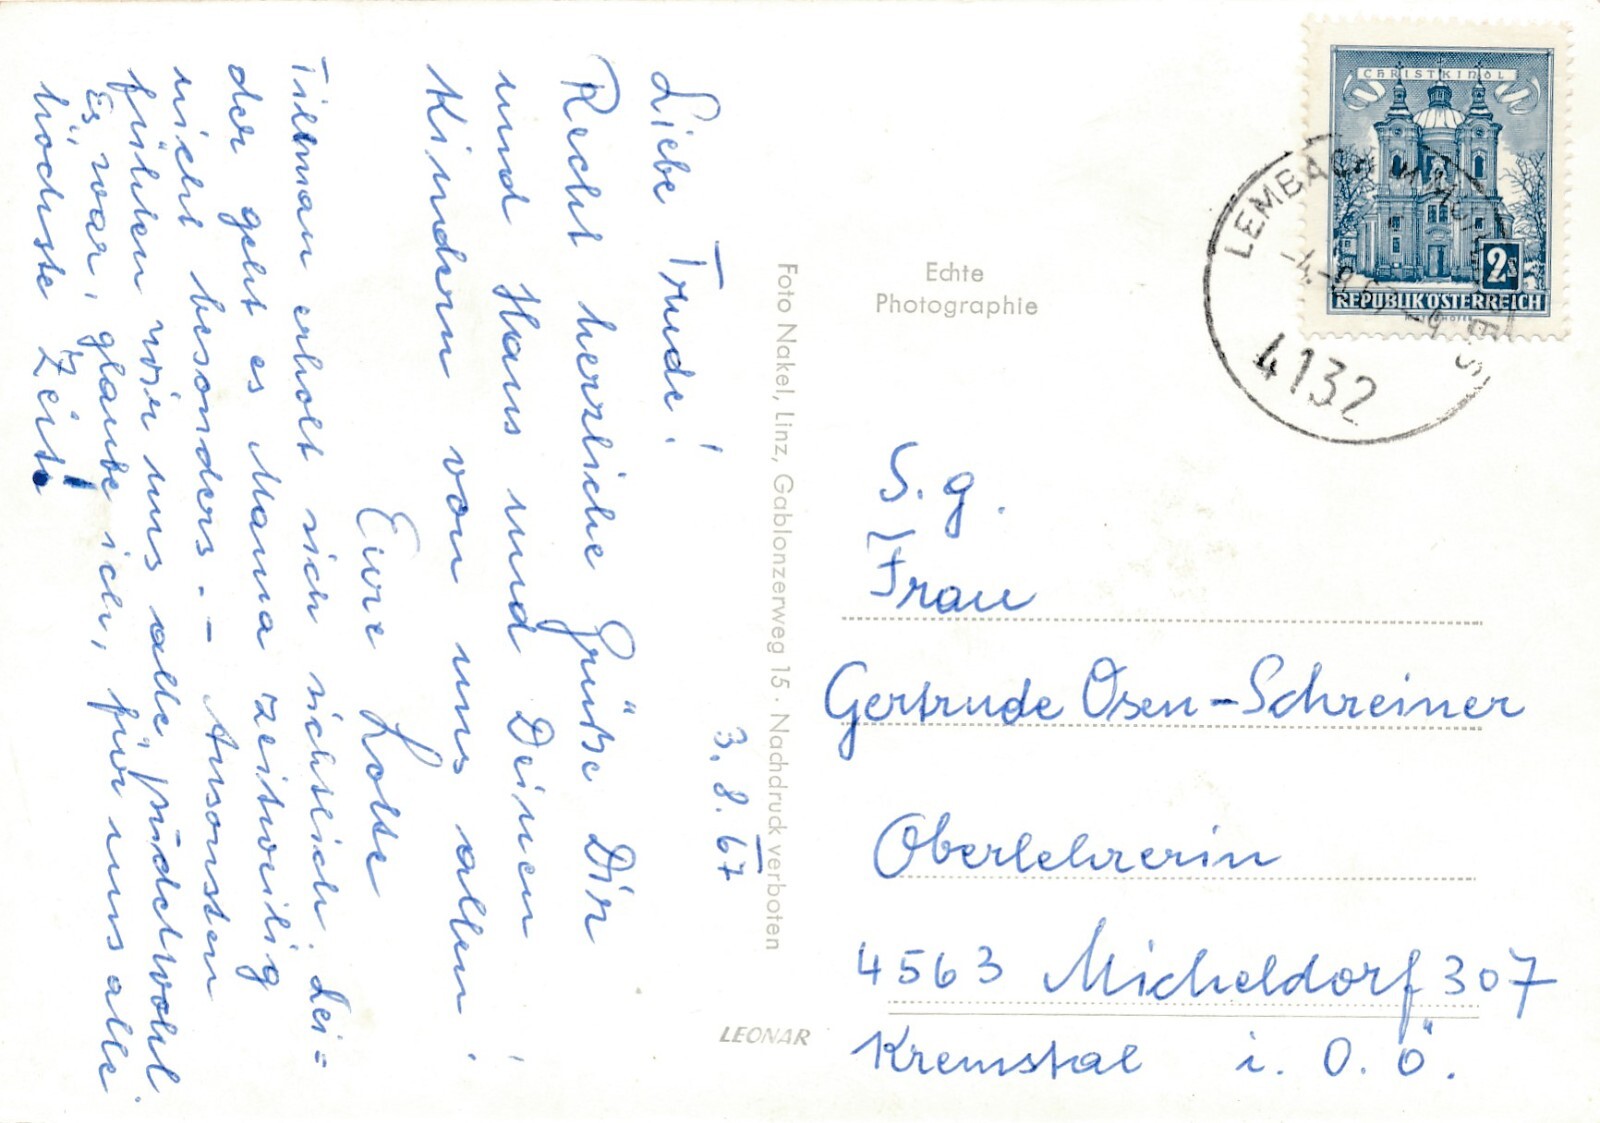 3. 8. 67
Liebe Trude!
Recht herzliche Grüße Dir
und Hans und Deinen
Kindern von uns allen!
Eure Lotte
Tillman erholt sich sichtlich. Lei=
der geht es Mama zeitweilig
nicht besonders. - Ansonsten
fühlen wir uns alle „pudelwohl“.
Es war, glaube ich, für uns alle
höchste Zeit!
Foto Nakel, Linz, Gablonzerweg 15 · Nachdruck verboten
LEONAR
Echte
Photographie
CHRISTKINDL
2s
REPUBLIK ÖSTERREICH
LEMBACH
4132
S. g.
Frau
Gertrude Osen-Schreiner
Oberlehrerin
4563 Micheldorf 307
Kremstal i. O. Ö.